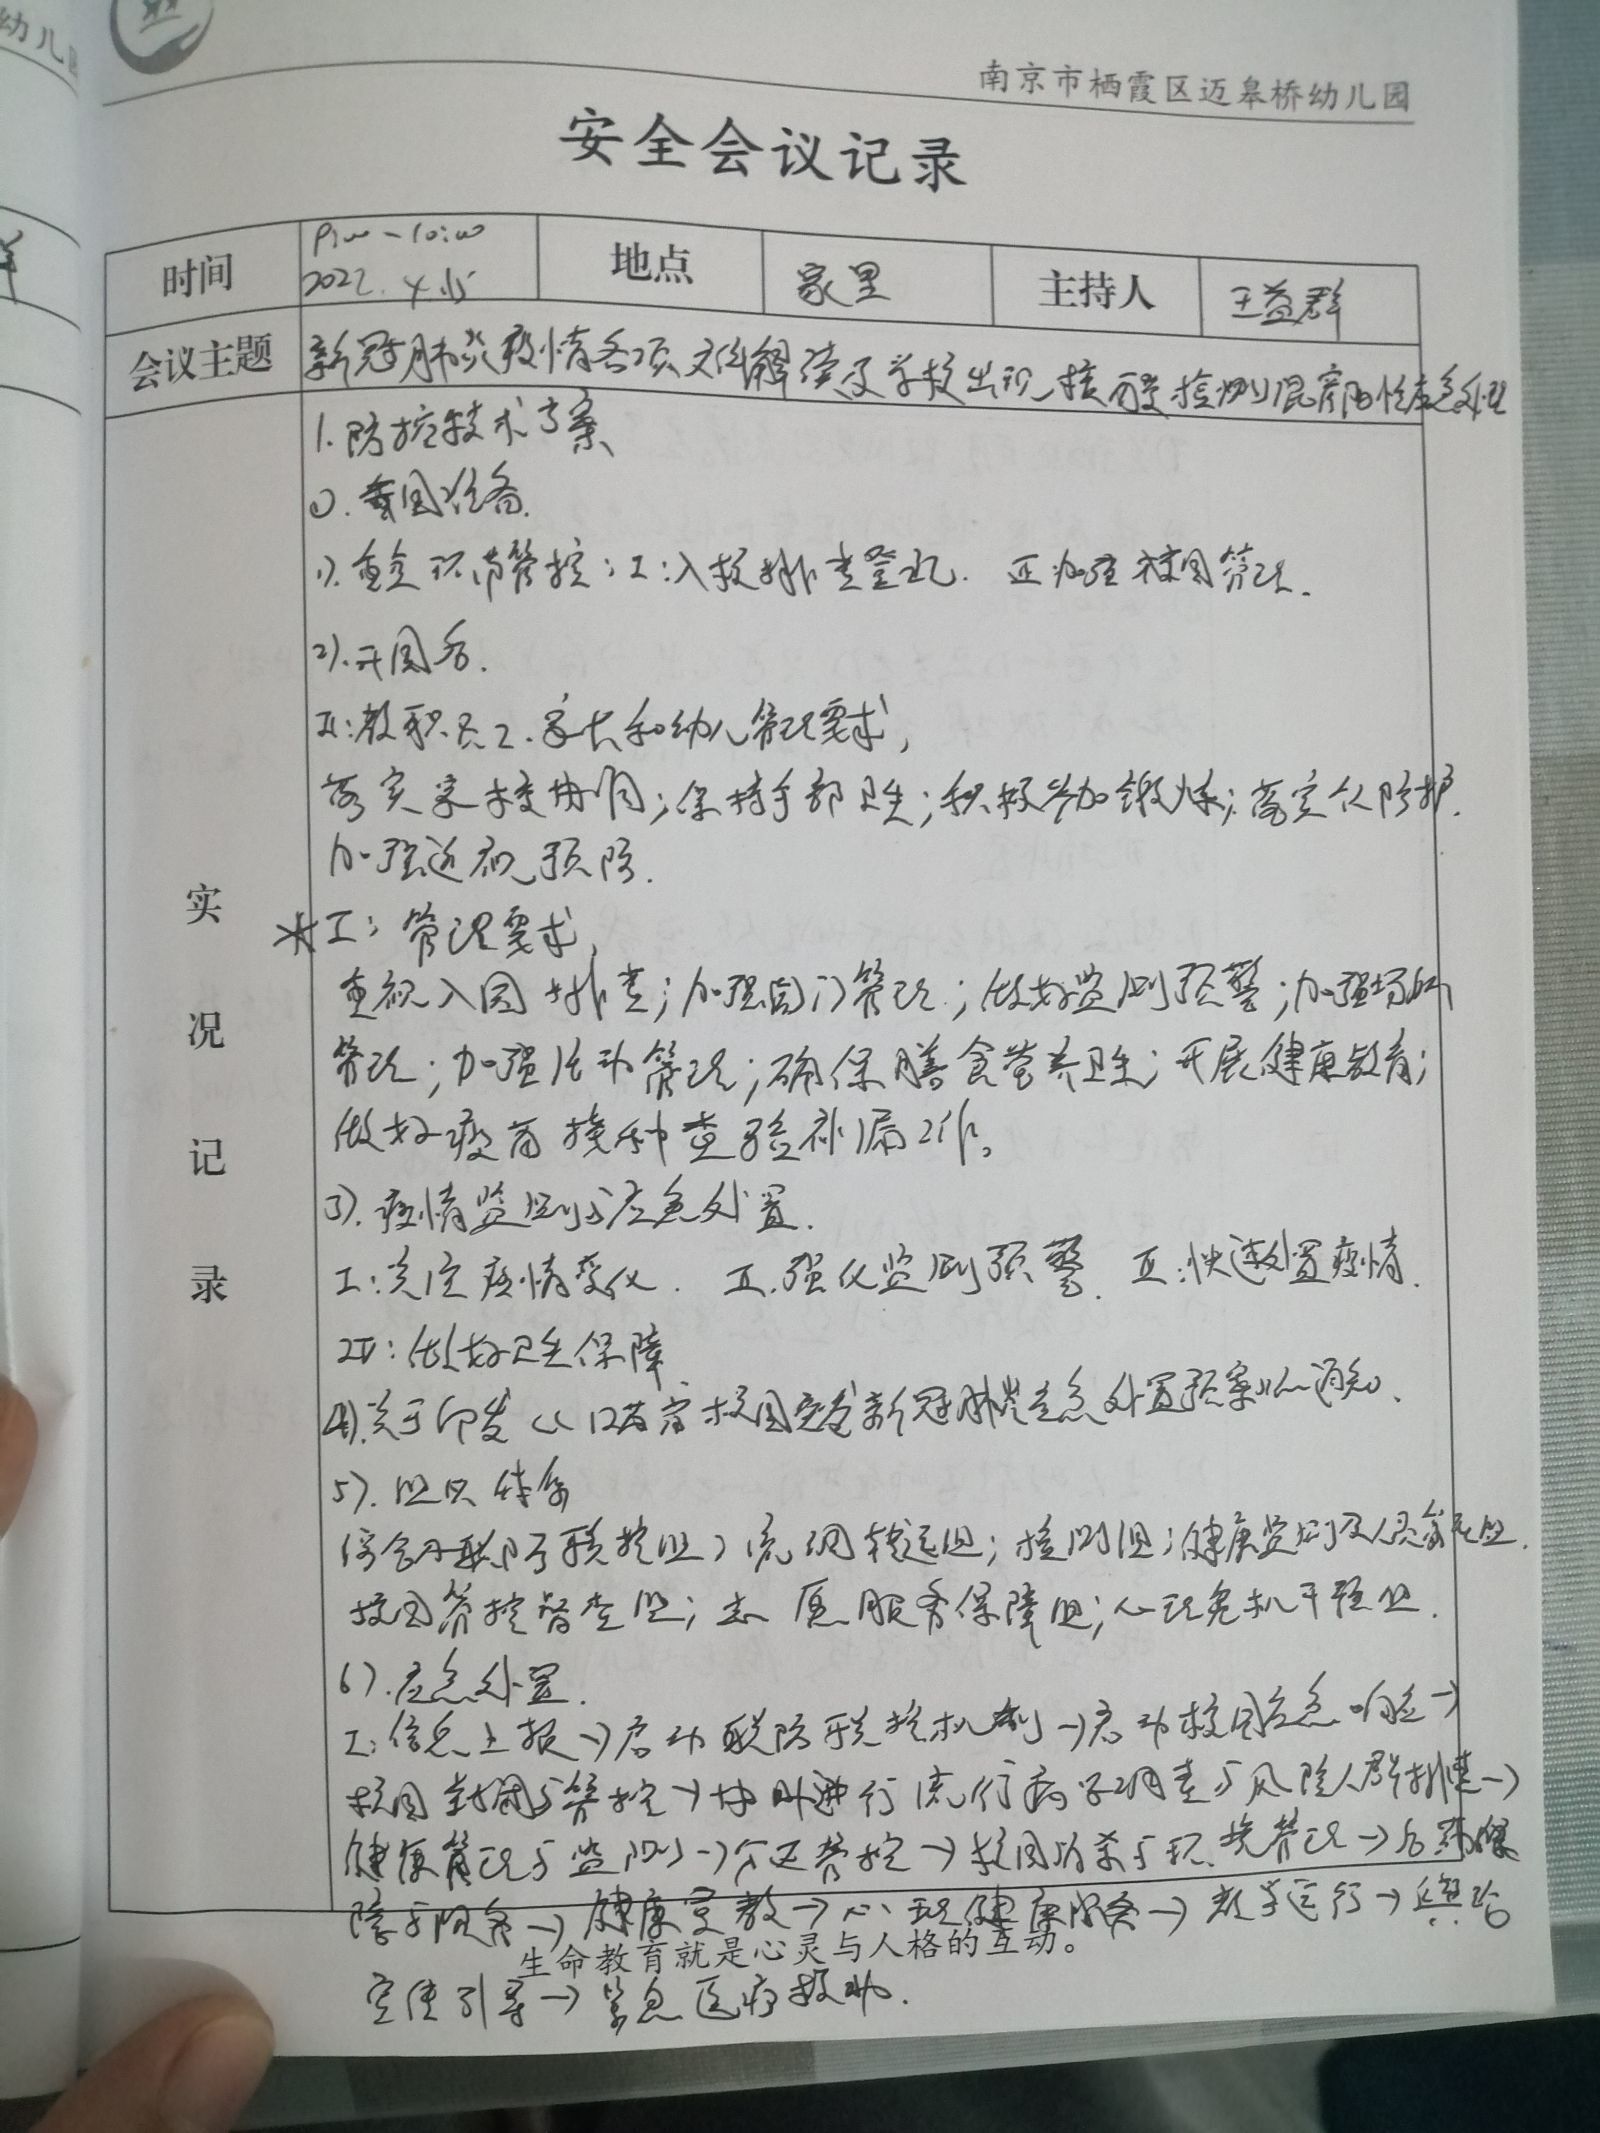 幼儿园
南京市栖霞区迈皋桥幼儿园
安全会议记录
时间
9:00-10:00
2022.4.15
地点
家里
主持人
王益群
会议主题
新冠肺炎疫情各项文件解读及学校出现核酸检测混阳性应急处理
实况记录
1.防控技术方案
①.开园准备.
1).重点环节管控:I:入校排查登记. II加强校园管理.
2).开园后.
II:教职员工.家长和幼儿管理要求,
落实家校协同;保持手部卫生;积极参加锻炼;落实个人防护.
加强近视预防.
*I: 管理要求,
重视入园排查;加强园门管理;做好监测预警;加强场所
管理;加强活动管理;确保膳食营养卫生;开展健康教育;
做好疫苗接种查验补漏工作。
3).疫情监测与应急处置.
I:关注疫情变化. II.强化监测预警. III:快速处置疫情.
IV:做好卫生保障
4).关于印发《江苏省校园突发新冠肺炎应急处置预案》的通知.
5).组织体系
综合联防联控组;流调转运组;检测组;健康监测及人员管理组.
校园管控督查组;志愿服务保障组;心理危机干预组.
6).应急处置.
I:信息上报→启动联防联控机制→启动校园应急响应→
校园封闭与管控→协助进行流行病学调查与风险人群排查→
健康管理与监测→分区管控→校园消杀与环境管理→后勤保
障与服务→健康宣教→心理健康服务→教学运行→舆论
生命教育就是心灵与人格的互动。
宣传引导→紧急医疗救助.